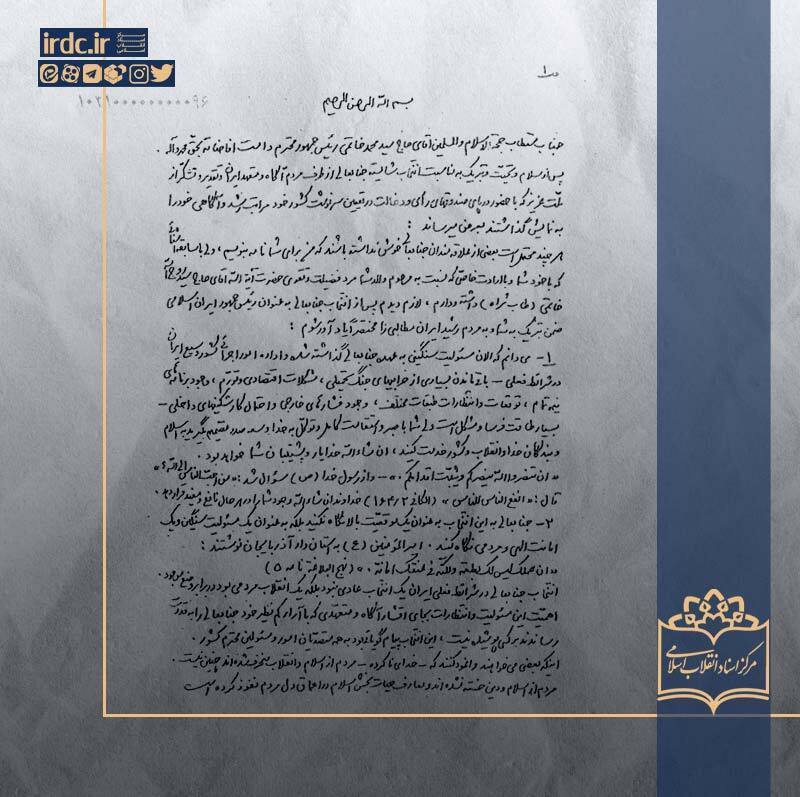 irdc.ir
مرکز اسناد انقلاب اسلامی
ص ۱
۱۰۲۱۰۰۰۰۰۰۰۰۰۰۹۶
بسم الله الرحمن الرحیم
جناب مستطاب حجةالاسلام والمسلمین آقای حاج سید محمد خاتمی رئیس جمهور محترم دامت افاضاته بحق محمد وآله
پس از سلام و تحیت و تبریک به مناسبت انتخاب شایسته جنابعالی از طرف مردم آگاه و متعهد ایران و تقدیر و تشکر از
ملّت عزیز که با حضور در پای صندوقهای رأی و دخالت در تعیین سرنوشت کشور خود مراتب رشد و آگاهی خود را
به نمایش گذاشتند بعرض میرساند :
هر چند محتمل است بعضی از علاقه مندان جنابعالی خوش نداشته باشند که من برای شما نامه بنویسم ، ولی با سابقه آشنائی
که با خود شما و با ارادت خاصی که نسبت به مرحوم والد شما مرد فضیلت و تقوی حضرت آیة الله آقای حاج سید روح الله
خاتمی (طاب ثراه) داشته و دارم ، لازم دیدم پس از انتخاب جنابعالی به عنوان رئیس جمهور ایران اسلامی
ضمن تبریک به شما و به مردم رشید ایران مطالبی را مختصراً یادآور شوم :
۱- می دانم که الان مسئولیت سنگینی به عهده جنابعالی گذاشته شده و اداره امور اجرائی کشور وسیع ایران
در شرائط فعلی – باقی ماندن بسیاری از خرابیهای جنگ تحمیلی ، مشکلات اقتصادی و تورّم ، وجود برنامه های
نیمه تمام ، توقعات و انتظارات طبقات مختلف ، وجود فشارهای خارجی و احتمال کارشکنیهای داخلی –
بسیار طاقت فرسا و مشکل است ولی شما با صبر و استقامت کامل و توکّل به خدا و سعه صدر تصمیم بگیرید به اسلام
و بندگان خدا و انقلاب و کشور خدمت کنید ، ان شاءالله خدا یار و پشتیبان شما خواهد بود .
« ان تنصروا الله ینصرکم ویثبت اقدامکم » – و از رسول خدا (ص) سؤال شد : « من احبّ الناس الی الله؟ »
قال : « انفع الناس للناس » (الکافی ۱۶۴/۲) خداوند ان شاءالله وجود شما را در هر حال نافع و مفید قرار دهد .
۲- جنابعالی به این انتخاب به عنوان یک موقعیت بالا نگاه نکنید بلکه به عنوان یک مسئولیت سنگین و یک
امانت الهی و مردمی نگاه کنید . امیرالمؤمنین (ع) به استاندار آذربایجان نوشتند :
« وان عملک لیس لک بطعمة ولکنّه فی عنقک امانة . » (نهج البلاغة نامه ۵)
انتخاب جنابعالی در شرائط فعلی ایران یک انتخاب عادی نبود بلکه یک انقلاب مردمی بود در برابر وضع موجود .
اهمیّت این مسئولیت و انتظارات بجای اقشار آگاه و متعهدی که با آراء کم نظیر خود جنابعالی را به قدرت
رساندند بر کسی پوشیده نیست ، این انتخاب پیام گویائی بود به همه متصدیان امور و مسئولین محترم کشور .
اینکه بعضی می خواهند وانمود کنند که – خدای ناکرده – مردم از اسلام و انقلاب منحرف شده اند چنین نیست
مردم از اسلام و دین خسته نشده اند و معارف حیات بخش اسلام در اعماق دل مردم نفوذ کرده است
مرکز اسناد انقلاب اسلامی